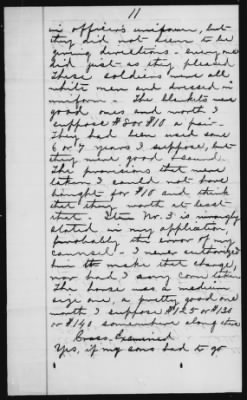 11
in officer's uniform, but
they did not seem to be
giving directions - everyone
did just as they pleased
These soldiers were all
white men and dressed in
uniform. The blankets was
good ones and worth I
suppose $8 or $10 a pair -
They had been used some
6 or 7 years I suppose, but
they were good & sound.
The provisions that were
taken I could not have
bought for $10 and think
that they worth at least
that. Item No. 3 is wrongly
stated in my application,
probably the error of my
counsel - I never authorized
him to make that charge,
nor had I any corn taken
The horse was a medium
size one, a pretty good one
worth I suppose $125 or $130
or $140 somewhere along there
Cross-Examined
Yes, if my sons had to go